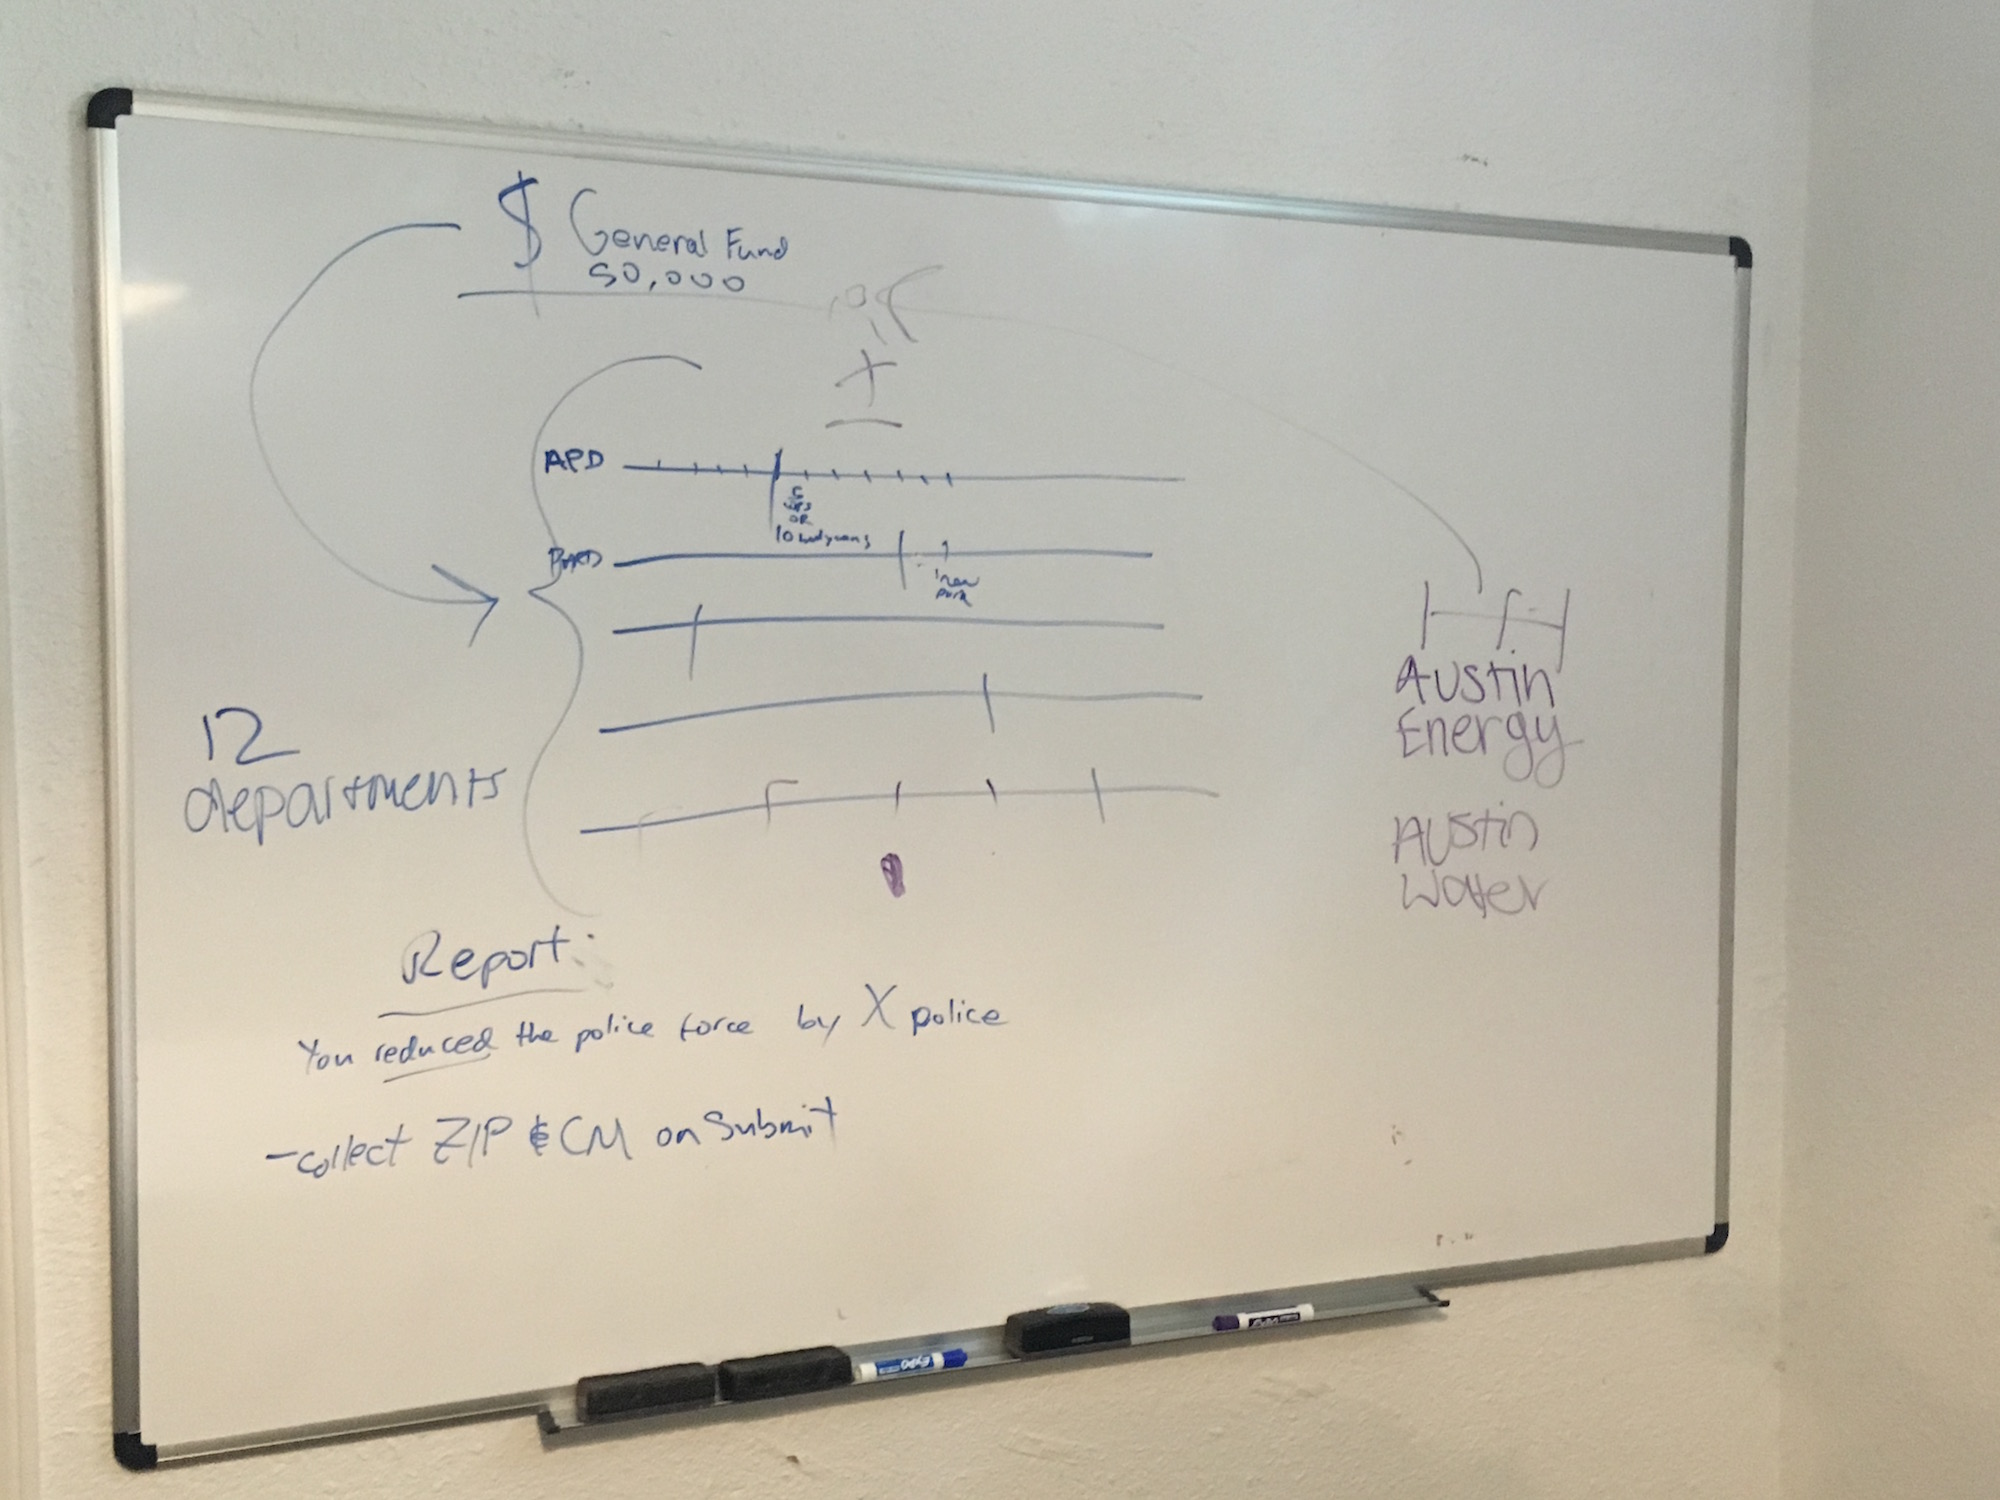 $ General Fund
50,000
+
APD
OR
10 bodycams
PARD
1 new
park
12
departments
Austin
Energy
Austin
Water
Report:
You reduced the police force by X police
- collect ZIP & CM on Submit
EXPO